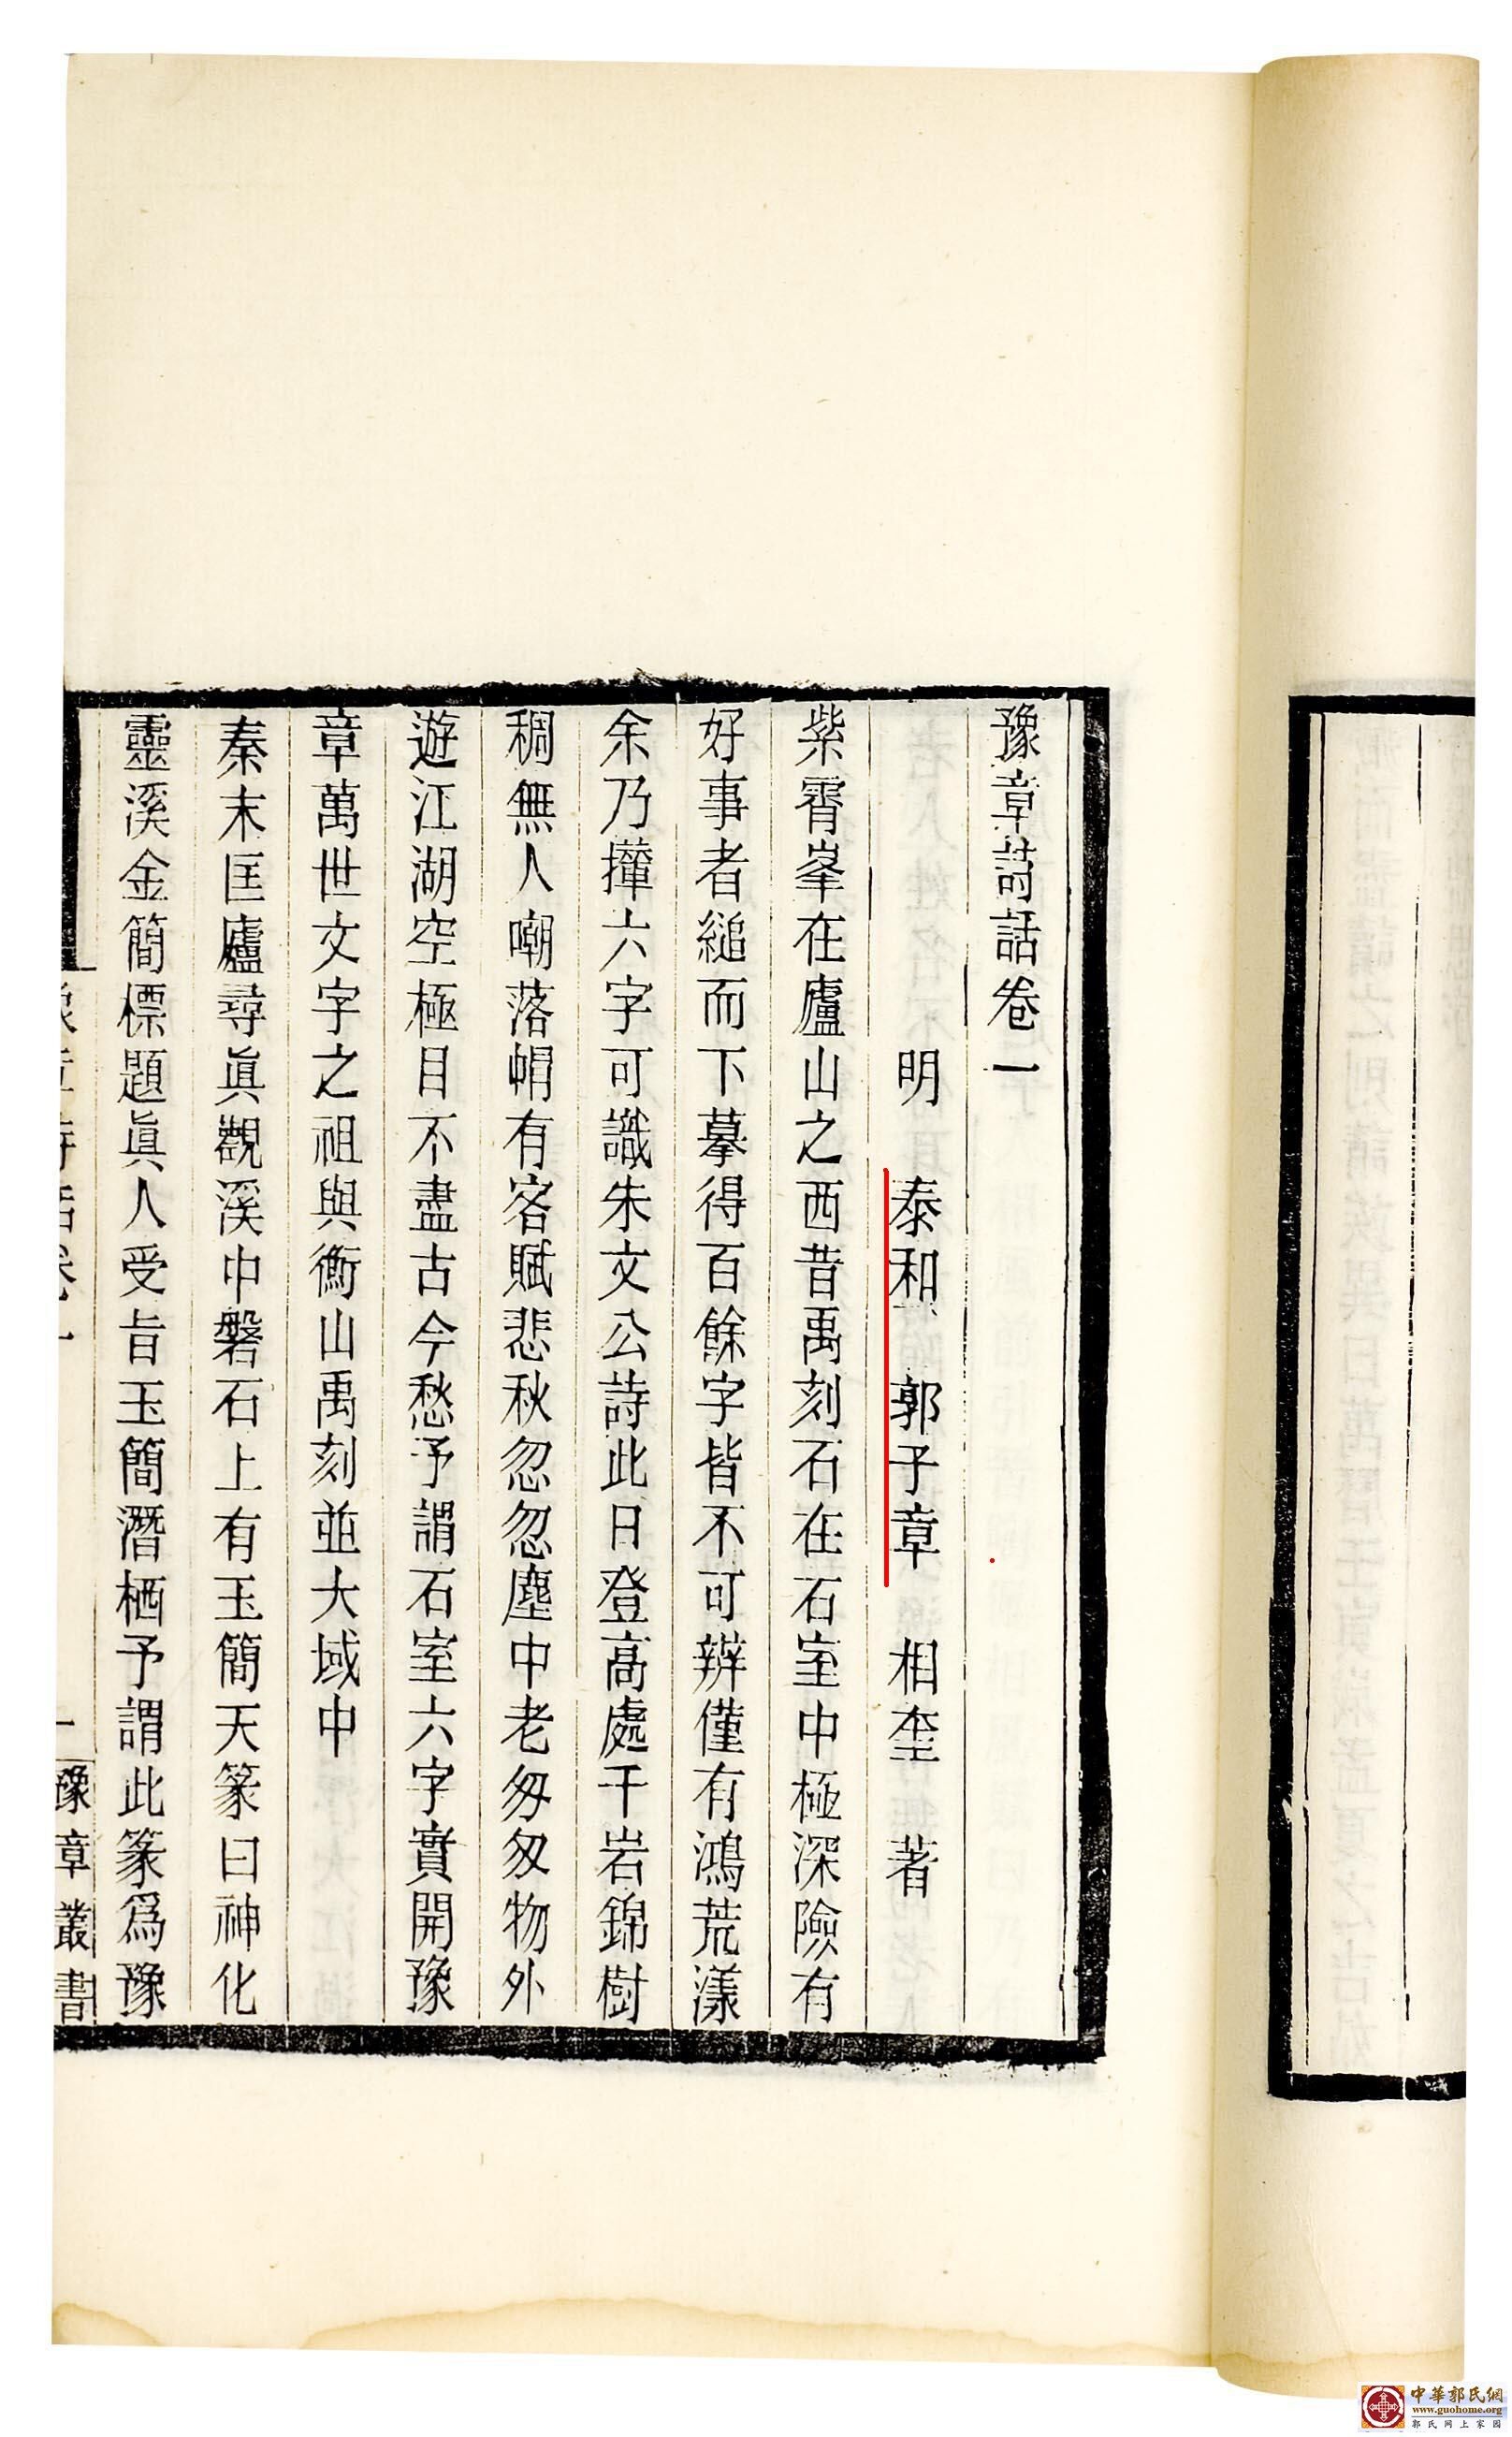 豫章詩話卷一
明　泰和　郭子章　相奎　著
紫霄峯在廬山之西昔禹刻石在石室中極深險有
好事者縋而下摹得百餘字皆不可辨僅有鴻荒漾
余乃攆六字可識朱文公詩此日登高處千岩錦樹
稠無人嘲落帽有客賦悲秋忽忽塵中老匆匆物外
遊江湖空極目不盡古今愁予謂石室六字實開豫
章萬世文字之祖與衡山禹刻並大域中
秦末匡廬尋眞觀溪中磐石上有玉簡天篆曰神化
靈溪金簡標題眞人受旨玉簡潛栖予謂此篆爲豫
豫章詩話卷一
一
豫章叢書
中華郭氏網
www.guohome.org
郭氏网上家园